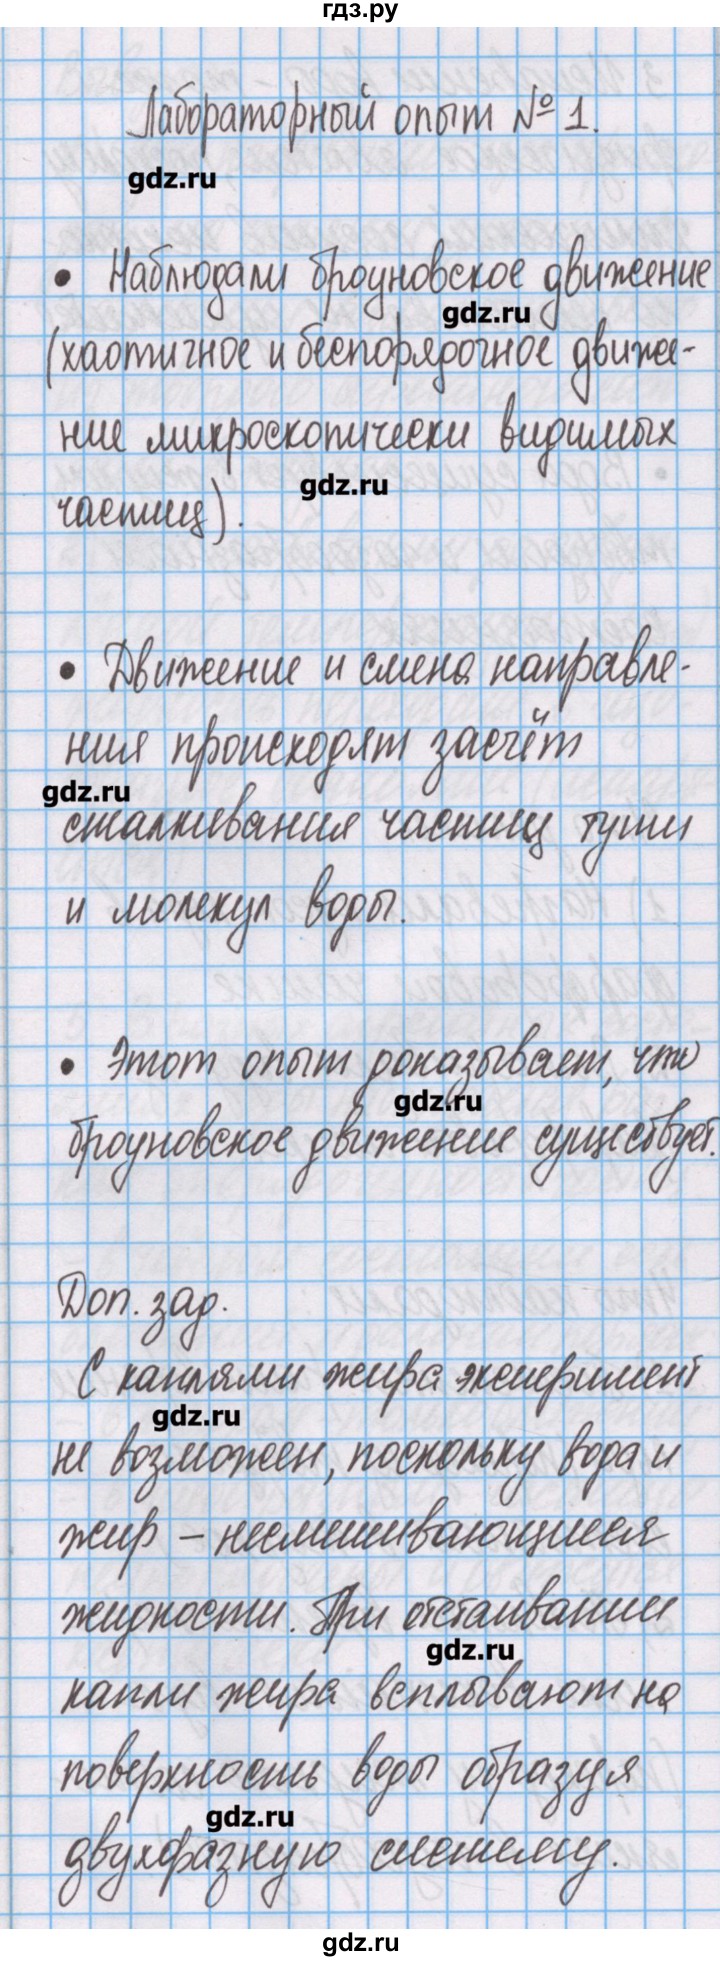 гдз.ру
Лабораторный опыт № 1.
gdz.ru
• Наблюдали броуновское движение
gdz.ru
(хаотичное и беспорядочное движе-
ние микроскопически видимых
gdz.ru
частиц).
• Движение и смена направле-
ния происходят засчёт
gdz.ru
сталкивания частиц туши
и молекул воды.
• Этот опыт доказывает, что
gdz.ru
броуновское движение существует.
Доп. зад.
С каплями жира эксперимент
gdz.ru
не возможен, поскольку вода и
жир – несмешивающиеся
жидкости. При отстаивании
gdz.ru
капли жира всплывают на
поверхность воды образуя
gdz.ru
двухфазную систему.
gdz.ru